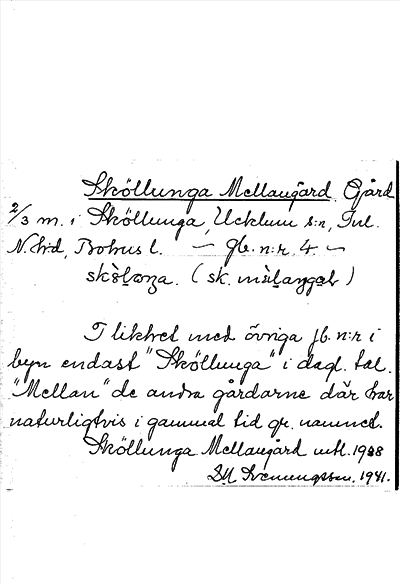 Sköllunga Mellangård. Gård
2/3 m. i Sköllunga, Ucklum s:n, Inl.
N. hd, Bohus l. — jb. n:r. 4. —
I likhet med övriga jb. n:r i
byn endast "Sköllunga" i dagl. tal.
"Mellan" de andra gårdarne där har
naturligtvis i gammal tid gr. namnet.
Sköllunga Mellangård uttl. 1938
1941.